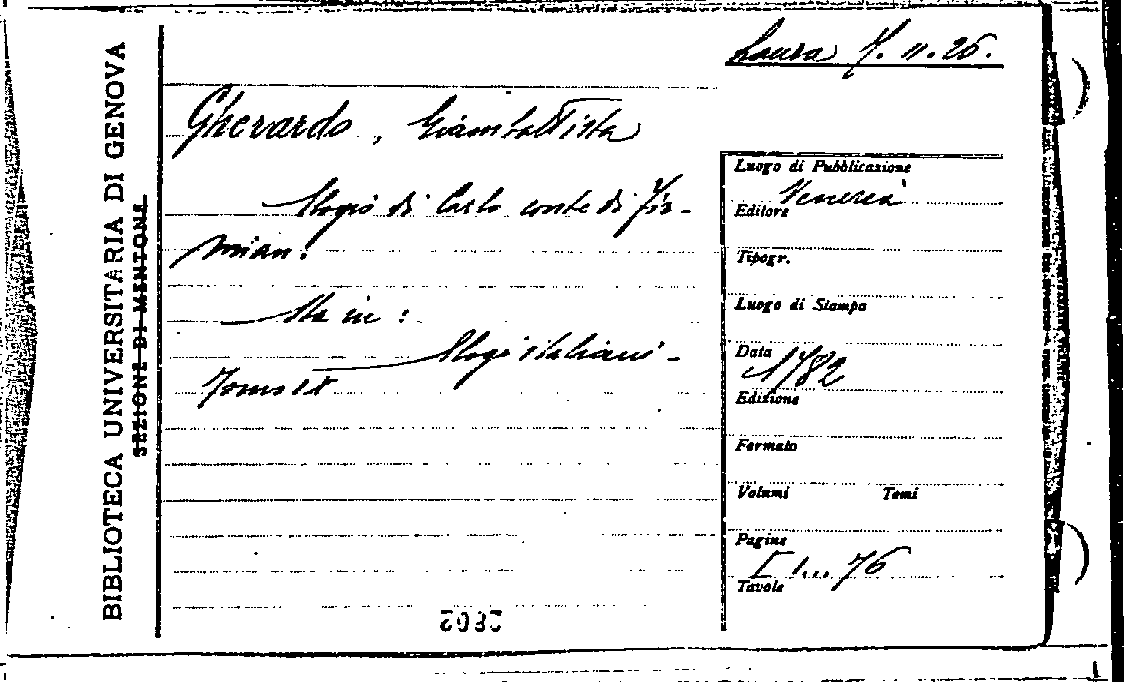 BIBLIOTECA UNIVERSITARIA DI GENOVA
SEZIONE DI MENTONE
Laura 11.26.
Gherardo, Giambattista
Elogio di Carlo conte di Fir-
mian.
Sta in:
Elogi italiani -
Tomo IX
Luogo di Pubblicazione
Venezia
Editore
Tipogr.
Luogo di Stampa
Data
1782
Edizione
Formato
Volumi Tomi
Pagine
76
Tavole